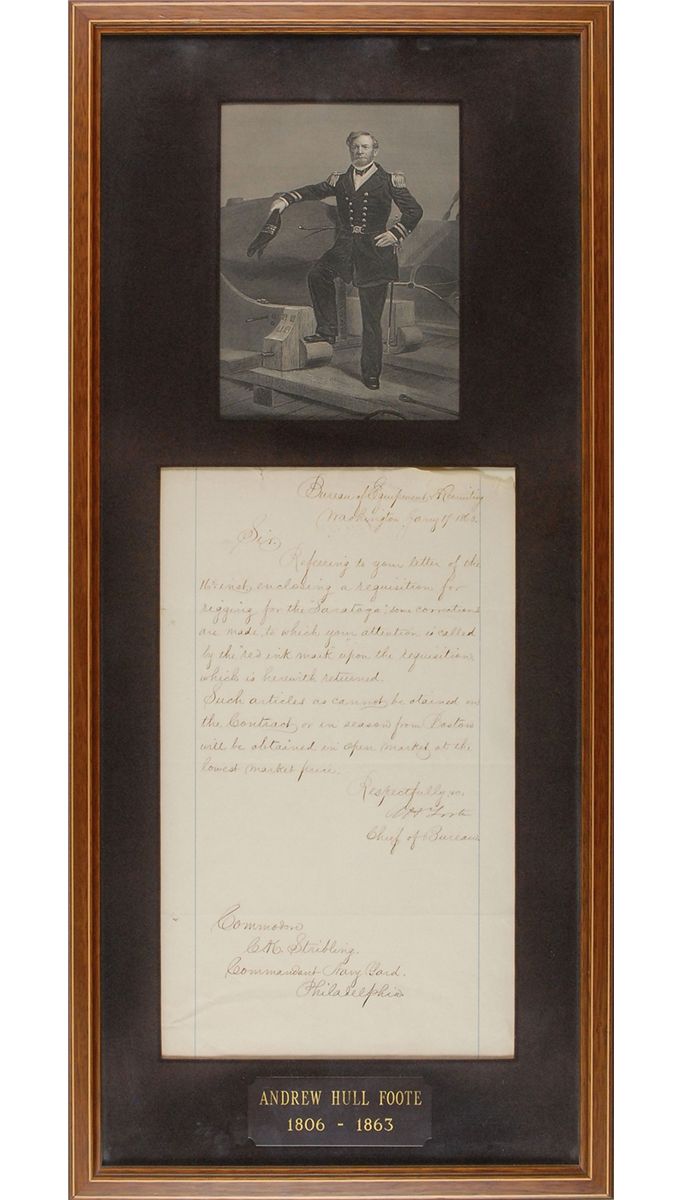 Bureau of Equipment & Recruiting
Washington Jany 17 1863.
Sir.
Referring to your letter of the
16th inst, enclosing a requisition for
rigging for the "Saratoga", some corrections
are made, to which your attention is called
by the "red ink mark" upon the requisition,
which is herewith returned.
Such articles as cannot be otained on
the Contract, or in season from Boston
will be obtained in open market, at the
lowest market price.
Respectfully
AH Foote
Chief of Bureau
Commodore
C.K. Stribling.
Commandant Navy Yard.
Philadelphia
ANDREW HULL FOOTE
1806 - 1863